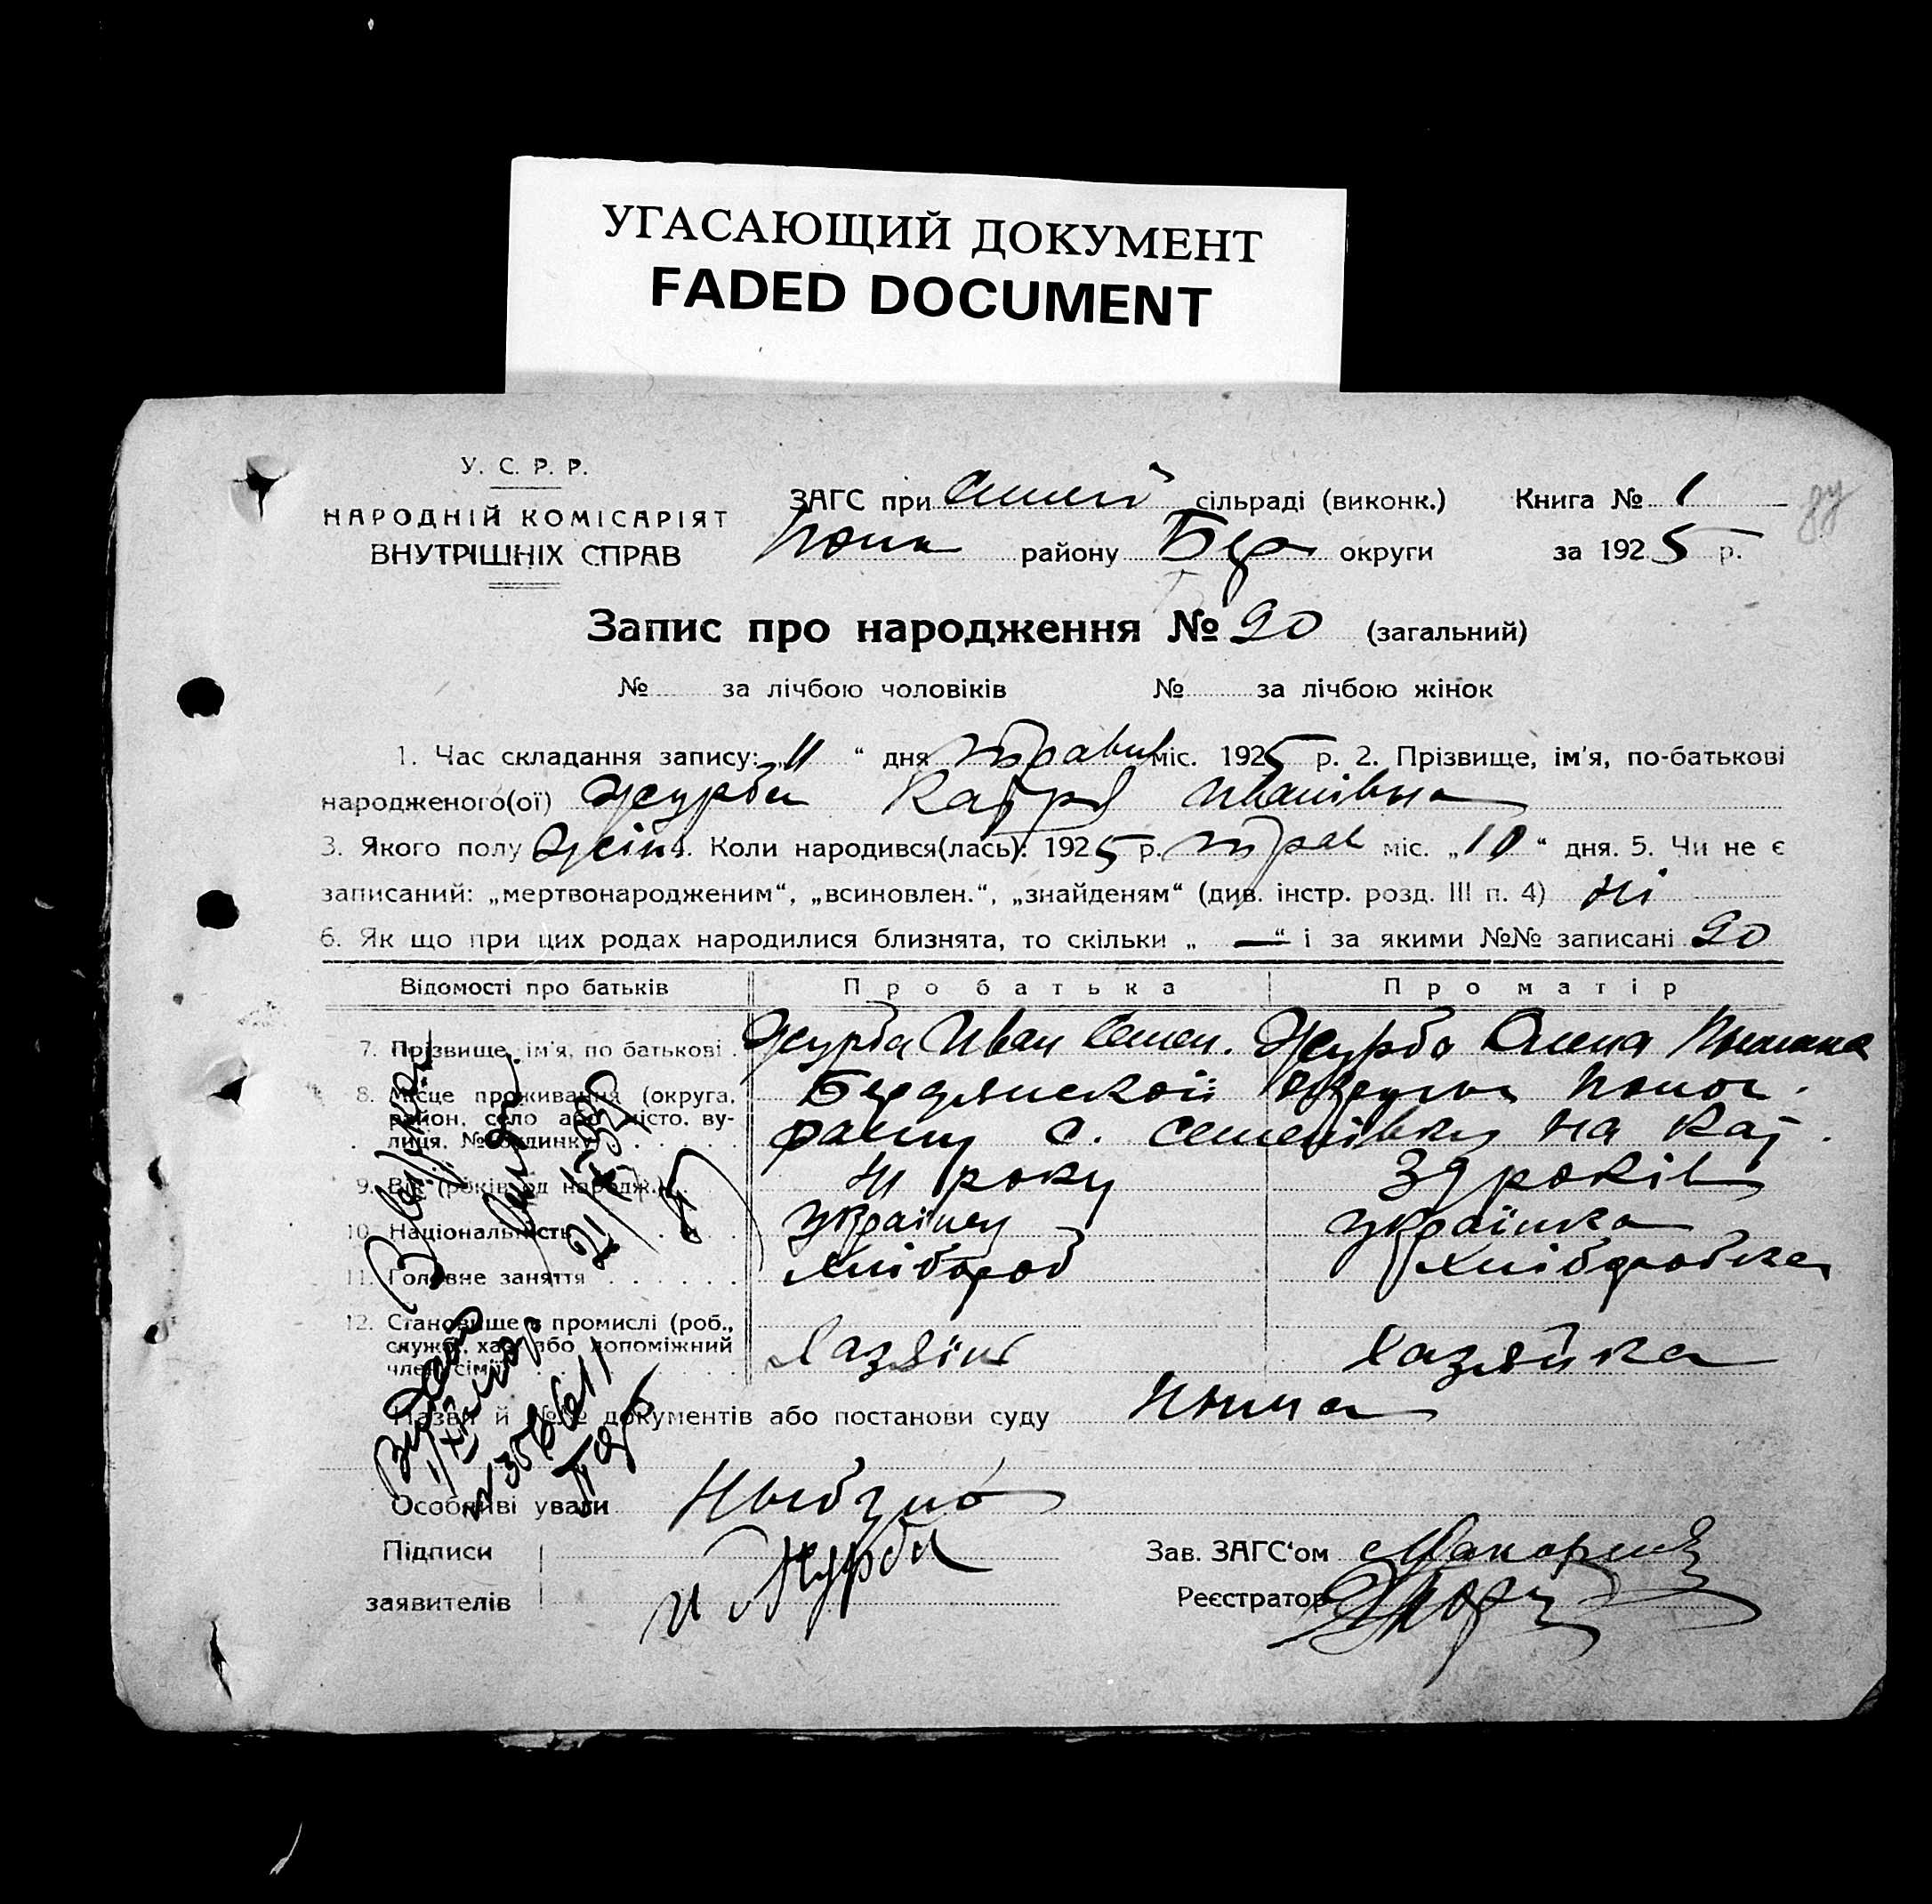 УГАСАЮЩИЙ ДОКУМЕНТ
FADED DOCUMENT
У. С. Р. Р.
НАРОДНІЙ КОМІСАРІЯТ
ВНУТРІШНІХ СПРАВ
ЗАГС при сільраді (виконк.) Книга № 1
району Бер округи за 1925 р.
Запис про народження № 90 (загальний)
№ за лічбою чоловіків № за лічбою жінок
1. Час складання запису: „11“ дня травня міс. 1925 р. 2. Прізвище, ім'я, по-батькові
народженого(ої) Журба Катря Иванівна
3. Якого полу жін. 4. Коли народився(лась): 1925 р. трав міс. „10“ дня. 5. Чи не є
записаний: „мертвонародженим“, „всиновлен.“, „знайденям“ (див. інстр. розд. III п. 4) ні
6. Як що при цих родах народилися близнята, то скільки „—“ і за якими №№ записані 90
Відомості про батьків Про батька Про матір
7. Прізвище, ім'я, по батькові Журба Иван Семен. Журба Олена
8. Місце проживання (округа, район, село або місто, вулиця, № будинку) Бердянской округи
с. Семенівку на
9. Вік (років од народж.) 41 року 39 років
10. Національність українец українка
11. Головне заняття хлібороб хліборобка
12. Становище в промислі (роб., служб., хаз. або допоміжний член сім'ї) Хазяін Хазяйка
Назви й №№ документів або постанови суду
Особливі уваги
Підписи
заявителів И Журба
Зав. ЗАГС'ом
Реєстратор